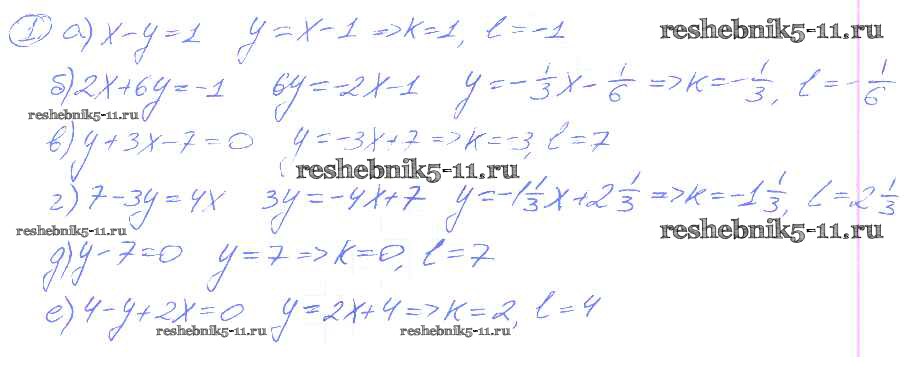 ① а) x-y=1 y=x-1 =>k=1, l=-1 reshebnik5-11.ru
б) 2x+6y=-1 6y=-2x-1 y=-1/3x-1/6 =>k=-1/3, l=-1/6
reshebnik5-11.ru
в) y+3x-7=0 y=-3x+7 =>k=-3, l=7
reshebnik5-11.ru
г) 7-3y=4x 3y=-4x+7 y=-1 1/3x+2 1/3 =>k=-1 1/3, l=2 1/3
reshebnik5-11.ru reshebnik5-11.ru
д) y-7=0 y=7 =>k=0, l=7
е) 4-y+2x=0 y=2x+4 =>k=2, l=4
reshebnik5-11.ru reshebnik5-11.ru